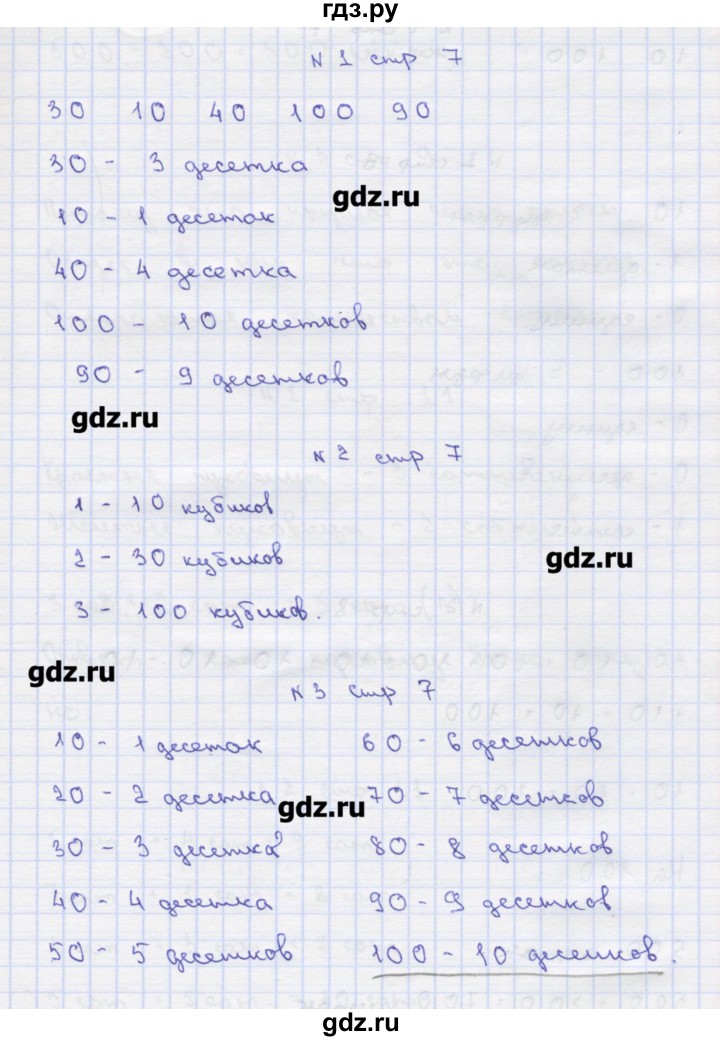 гдз.ру
N 1 стр 7
30 10 40 100 90
30 - 3 десетка
gdz.ru
10 - 1 десеток
40 - 4 десетка
100 - 10 десетков
90 - 9 десетков
gdz.ru
N 2 стр 7
1 - 10 кубиков
2 - 30 кубиков
gdz.ru
3 - 100 кубиков.
gdz.ru
N 3 стр 7
10 - 1 десеток 60 - 6 десетков
20 - 2 десетка 70 - 7 десетков
gdz.ru
30 - 3 десетка 80 - 8 десетков
40 - 4 десетка 90 - 9 десетков
50 - 5 десетков 100 - 10 десетков.
gdz.ru